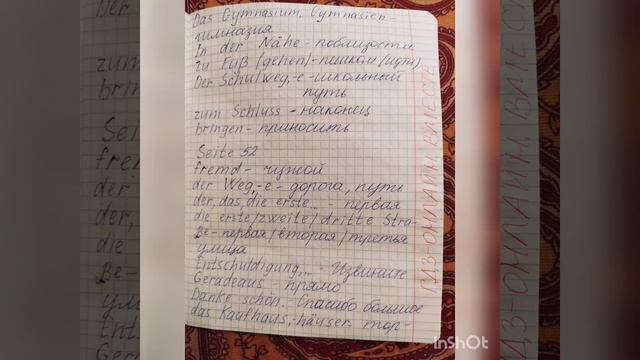 Das Gymnasium, Gymnasien-
гимназия
In der Nähe - поблизости
zu Fuß (gehen) - пешком (идти)
Der Schulweg,-e - школьный
путь
zum Schluss - наконец
bringen - приносить
Seite 52
fremd - чужой
der Weg,-e - дорога, путь
der, das, die erste... - первая
die erste/zweite/dritte Stra-
ße - первая/вторая/третья
улица
Entschuldigung,... - Извините
Geradeaus - прямо
Danke schön. - Спасибо большое
das Kaufhaus,-häuser тор-
ГДЗ-ОНЛАЙН, ВМЕСТЕ
InShOt